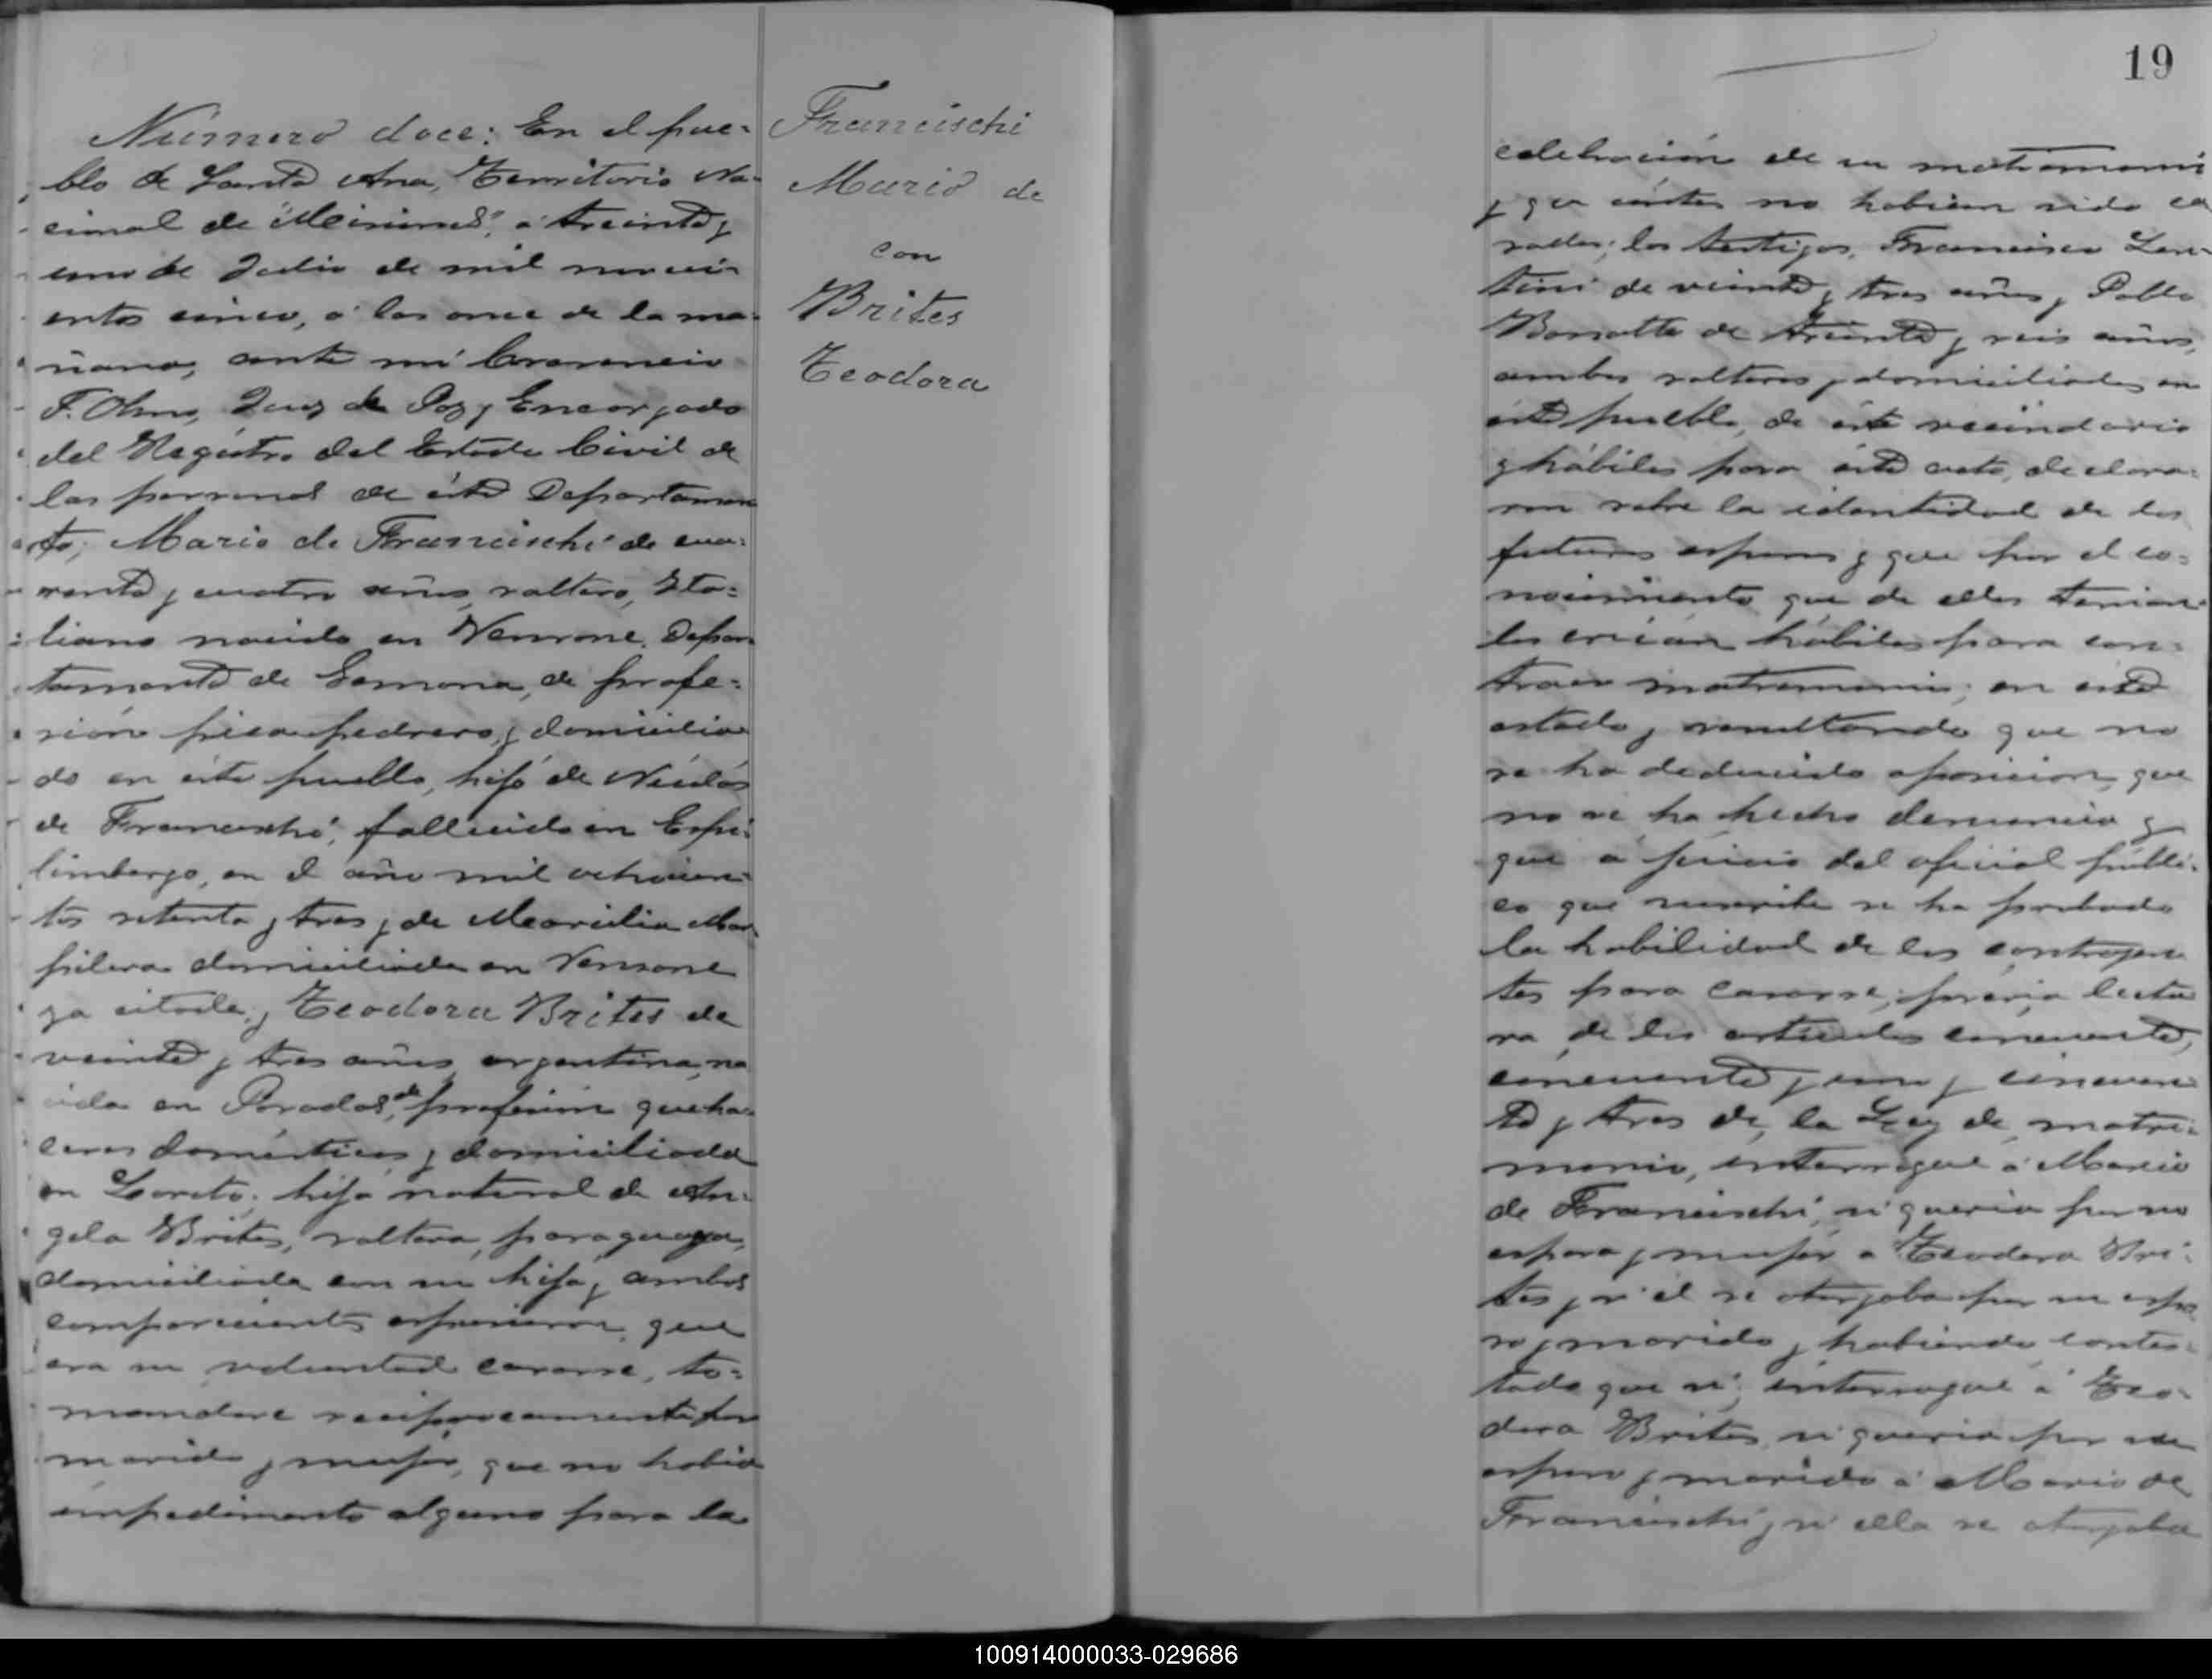 Número doce: En el pue-
blo de Santa Ana, Territorio Na-
cional de Misiones, á treinta y
uno de Julio de mil noveci-
entos cinco, á las once de la ma-
ñana, ante mi
F. Olmo, Juez de Paz y Encargado
del Registro del Estado Civil de
las personas de éste Departamen
to; Mario de Francischi de cua-
renta y cuatro años, soltero, Ita-
liano nacido en Vensone, Depar
tamento de Gemona, de profe-
sión pica pedrero, y domicilia
do en éste pueblo, hijo de Nicolás
de Francischi, fallecido en Espi-
limbergo, en el año mil ochocien-
tos setenta y tres y de
domiciliada en Vensone
ya citado, y Teodora Brites de
veinte y tres años, argentina, na
cida en Posadas, de profesión queha-
ceres domésticos y domiciliada
en Loreto, hija natural de An-
gela Brites, soltera, paraguaya,
domiciliada con su hija, y ambos
comparecientes expusieron que
era su voluntad casarse, to-
mandose reciprocamente por
marido y mujer, que no había
impedimento alguno para la
Francischi
Mario de
con
Brites
Teodora
19
celebración de su matrimonio
y que antes no habian sido ca
sados; los testigos, Francisco
de veinte y tres años y Pablo
de treinta y seis años,
ambos solteros y domiciliados en
éste pueblo, de éste vecindario
y hábiles para éste acto, declara-
ron sobre la identidad de los
futuros esposos y que por el co-
nocimiento que de ellos tenian
los creían hábiles para con-
traer matrimonio; en este
estado y resultando que no
se ha deducido oposicion, que
no se ha hecho denuncia y
que á juicio del oficial públi-
co que suscribe se ha probado
la habilidad de los contrayen
tes para casarse, prévia lectu
ra de los articulos cincuenta,
cincuenta y uno y cincuen
ta y tres de la Ley de matri-
monio, interrogué á Mario
de Francischi, si queria por su
esposa y mujer a Teodora Bri-
tes y si él se otorgaba por su espo
so y marido y habiendo contes-
tado que si, interrogué á Teo-
dora Brites, si queria por su
esposo y marido á Mario de
Francischi y si ella se otorgaba
100914000033-029686